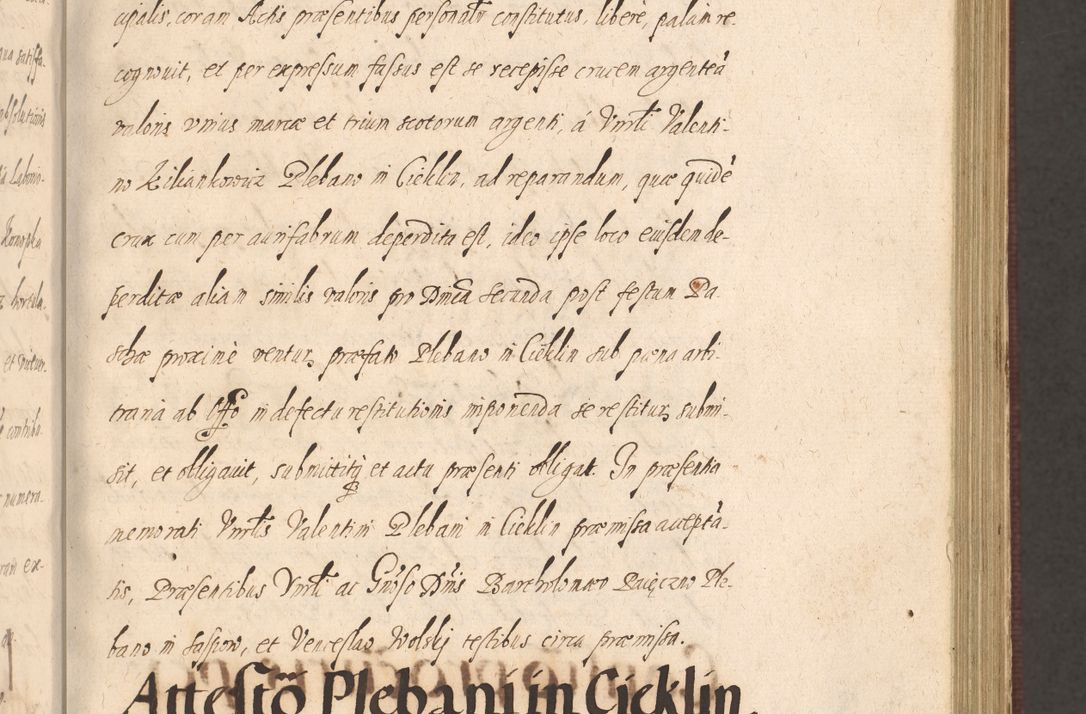 cipalis, coram Actis præsentibus personalr constitutus, liberè, palam re
cognouit, et per expressum fassus est se recepisse crucem argenteã
valoris vnius marcæ et trium scotorum argenti, á Vnrli Valenti-
no Kiliankowicz Plebano in Cieklin, ad reparandum, quæ quidẽ
crux cum per aurifabrum deperdita est, ideo ipse loco eiusdem de-
perditæ aliam similis valoris pro Dnica secunda post festum Pa-
schæ proximè ventur, præfato Plebano in Cieklin sub pœna arbi-
traria ab Offo in defectu restitutionis imponenda se restitur, submi-
sit, et obligauit, submittitq et actu præsenti obligat. In præsentia
memorati Vnrlis Valentini Plebani in Cieklin præmissa acceptã-
tis, Præsentibus Vnrli ac Gnoso Dnis Bartholomæo Pacięczno Ple-
bano in, et Venceslao Wolskj testibus circa præmissa.
Attesto Plebani in Cieklin.